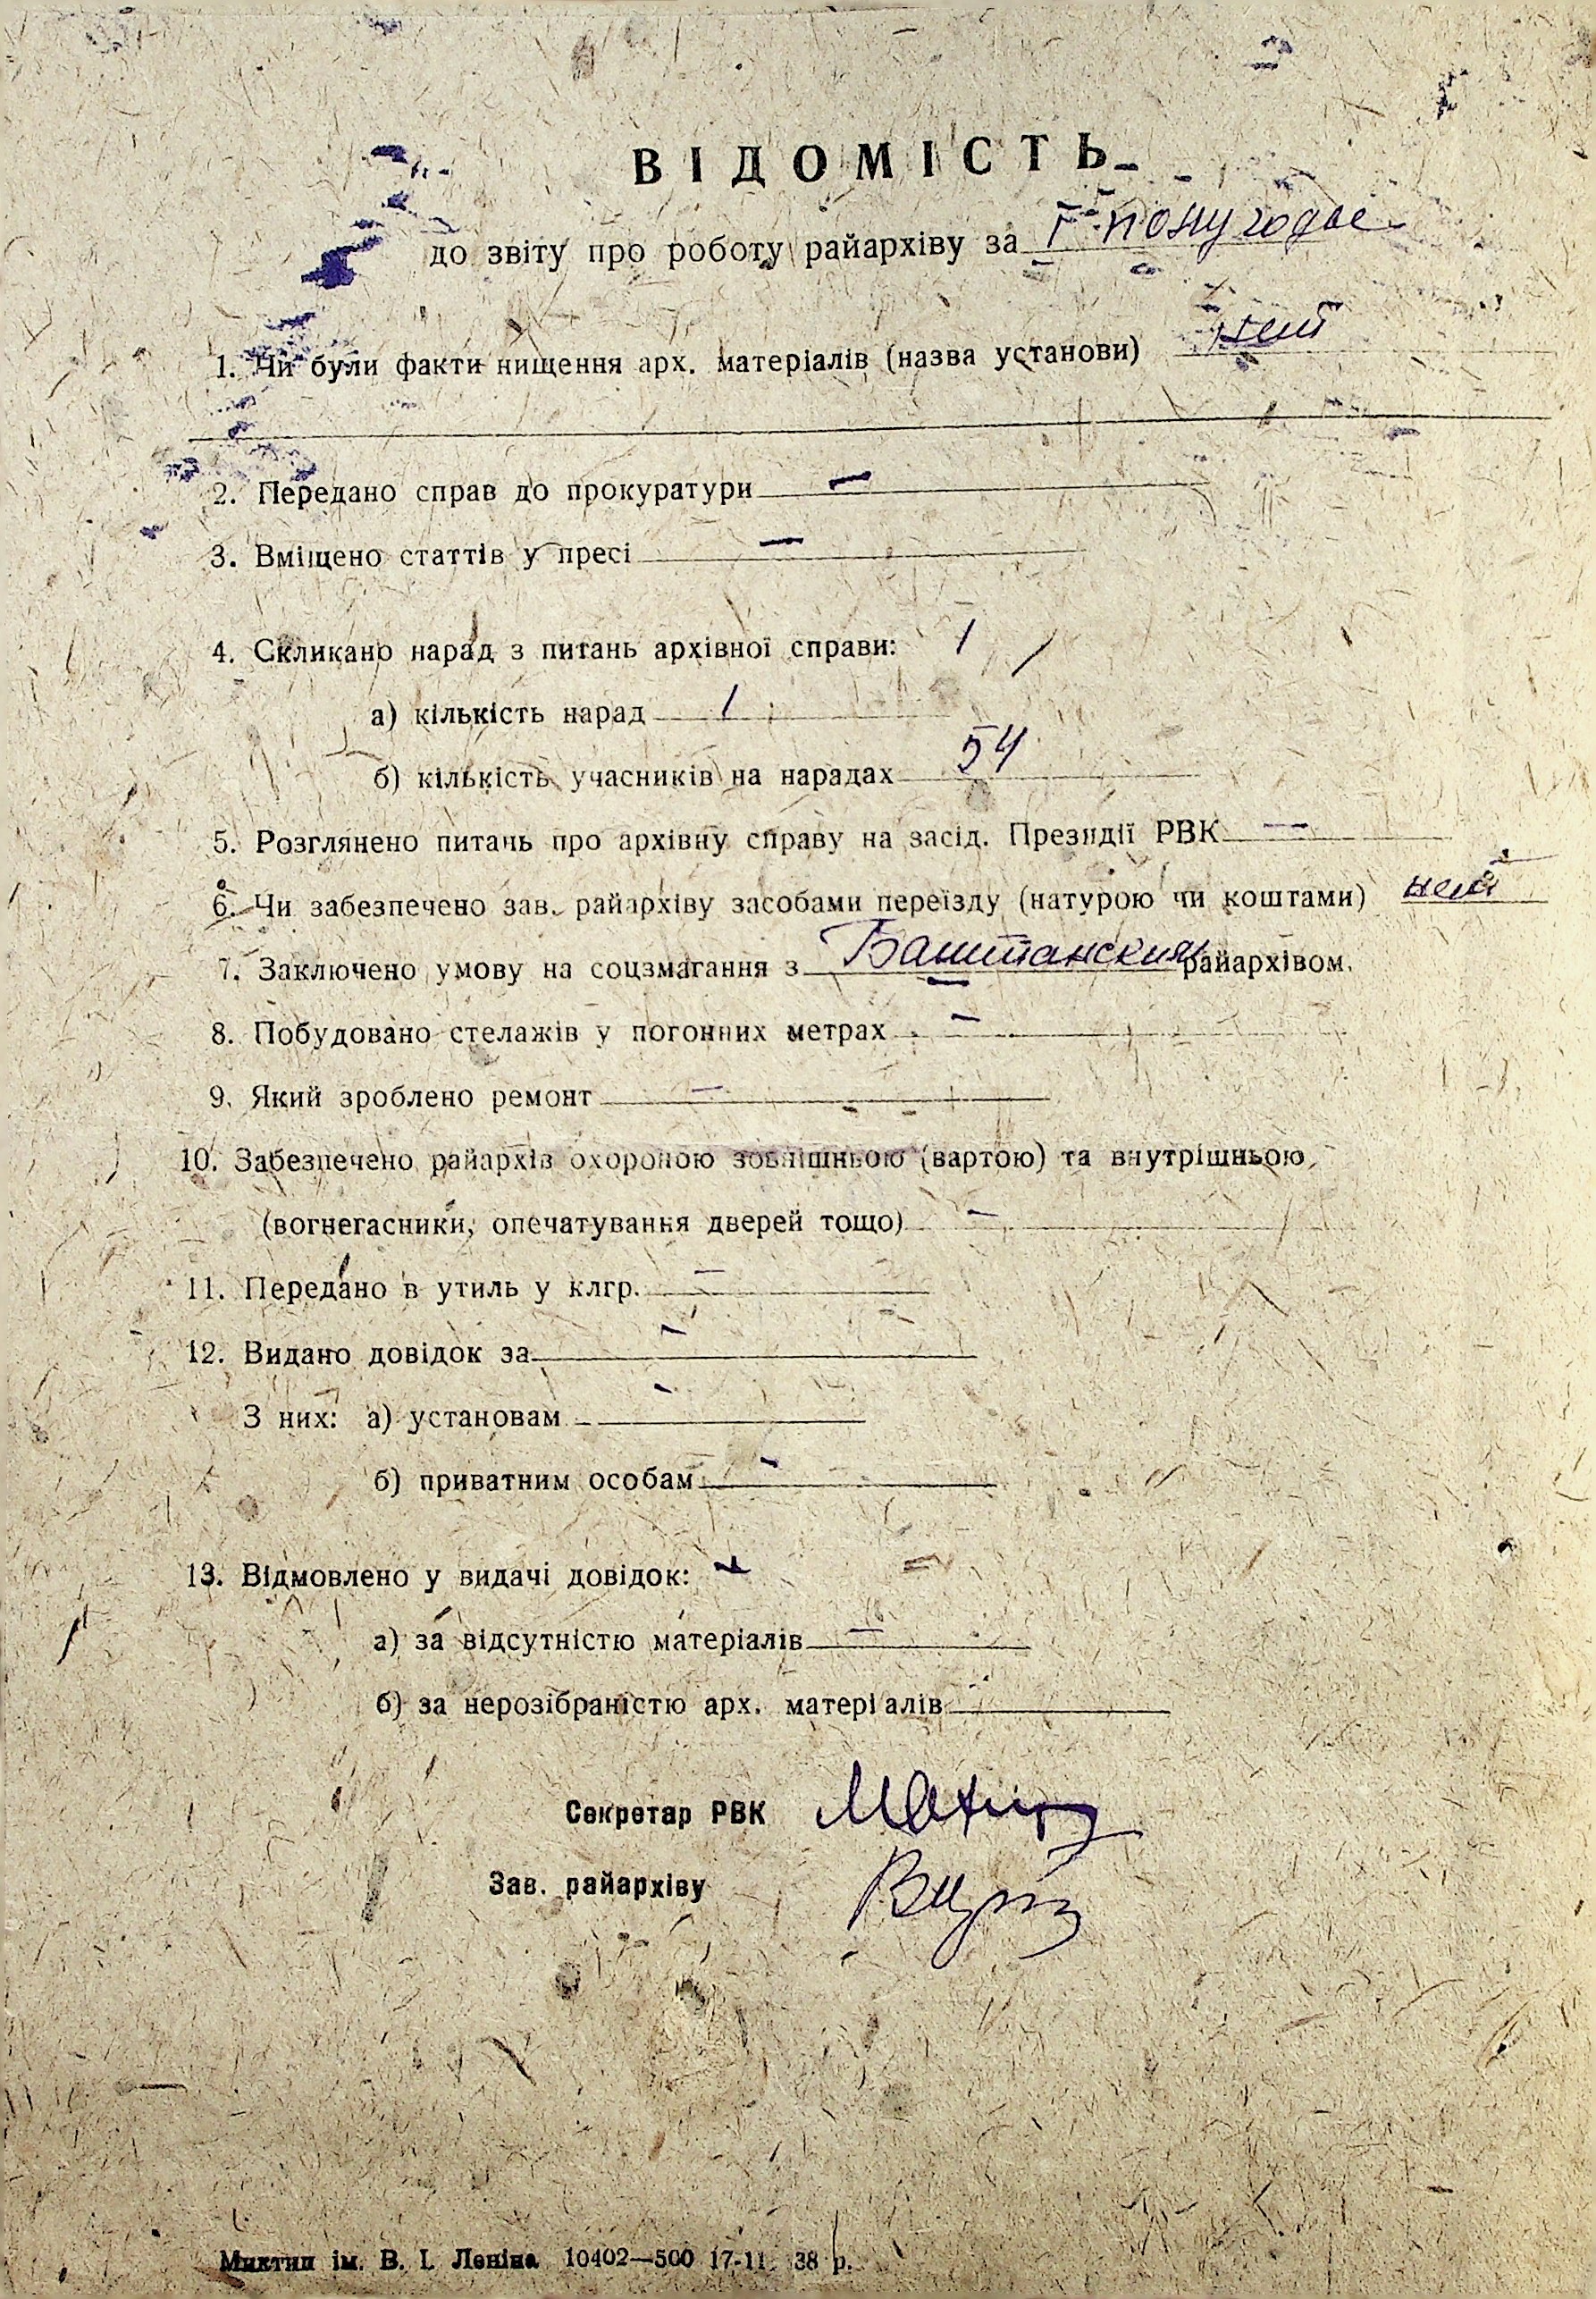 ВІДОМІСТЬ
до звіту про роботу райархіву за I-полугодье
1. Чи були факти нищення арх. матеріалів (назва установи) нет
2. Передано справ до прокуратури —
3. Вміщено статтів у пресі —
4. Скликано нарад з питань архівної справи: 1
а) кількість нарад 1
б) кількість учасників на нарадах 54
5. Розглянено питань про архівну справу на засід. Президії РВК —
6. Чи забезпечено зав. райархіву засобами переїзду (натурою чи коштами) нет
7. Заключено умову на соцзмагання з Баштанским райархівом.
8. Побудовано стелажів у погонних метрах —
9. Який зроблено ремонт —
10. Забезпечено райархів охороною зовнішньою (вартою) та внутрішньою
(вогнегасники, опечатування дверей тощо) —
11. Передано в утиль у клгр. —
12. Видано довідок за —
З них: а) установам —
б) приватним особам —
13. Відмовлено у видачі довідок: —
а) за відсутністю матеріалів —
б) за нерозібраністю арх. матеріалів —
Секретар РВК
Зав. райархіву
Миктип ім. В. І. Леніна 10402—500 17-11 38 р.